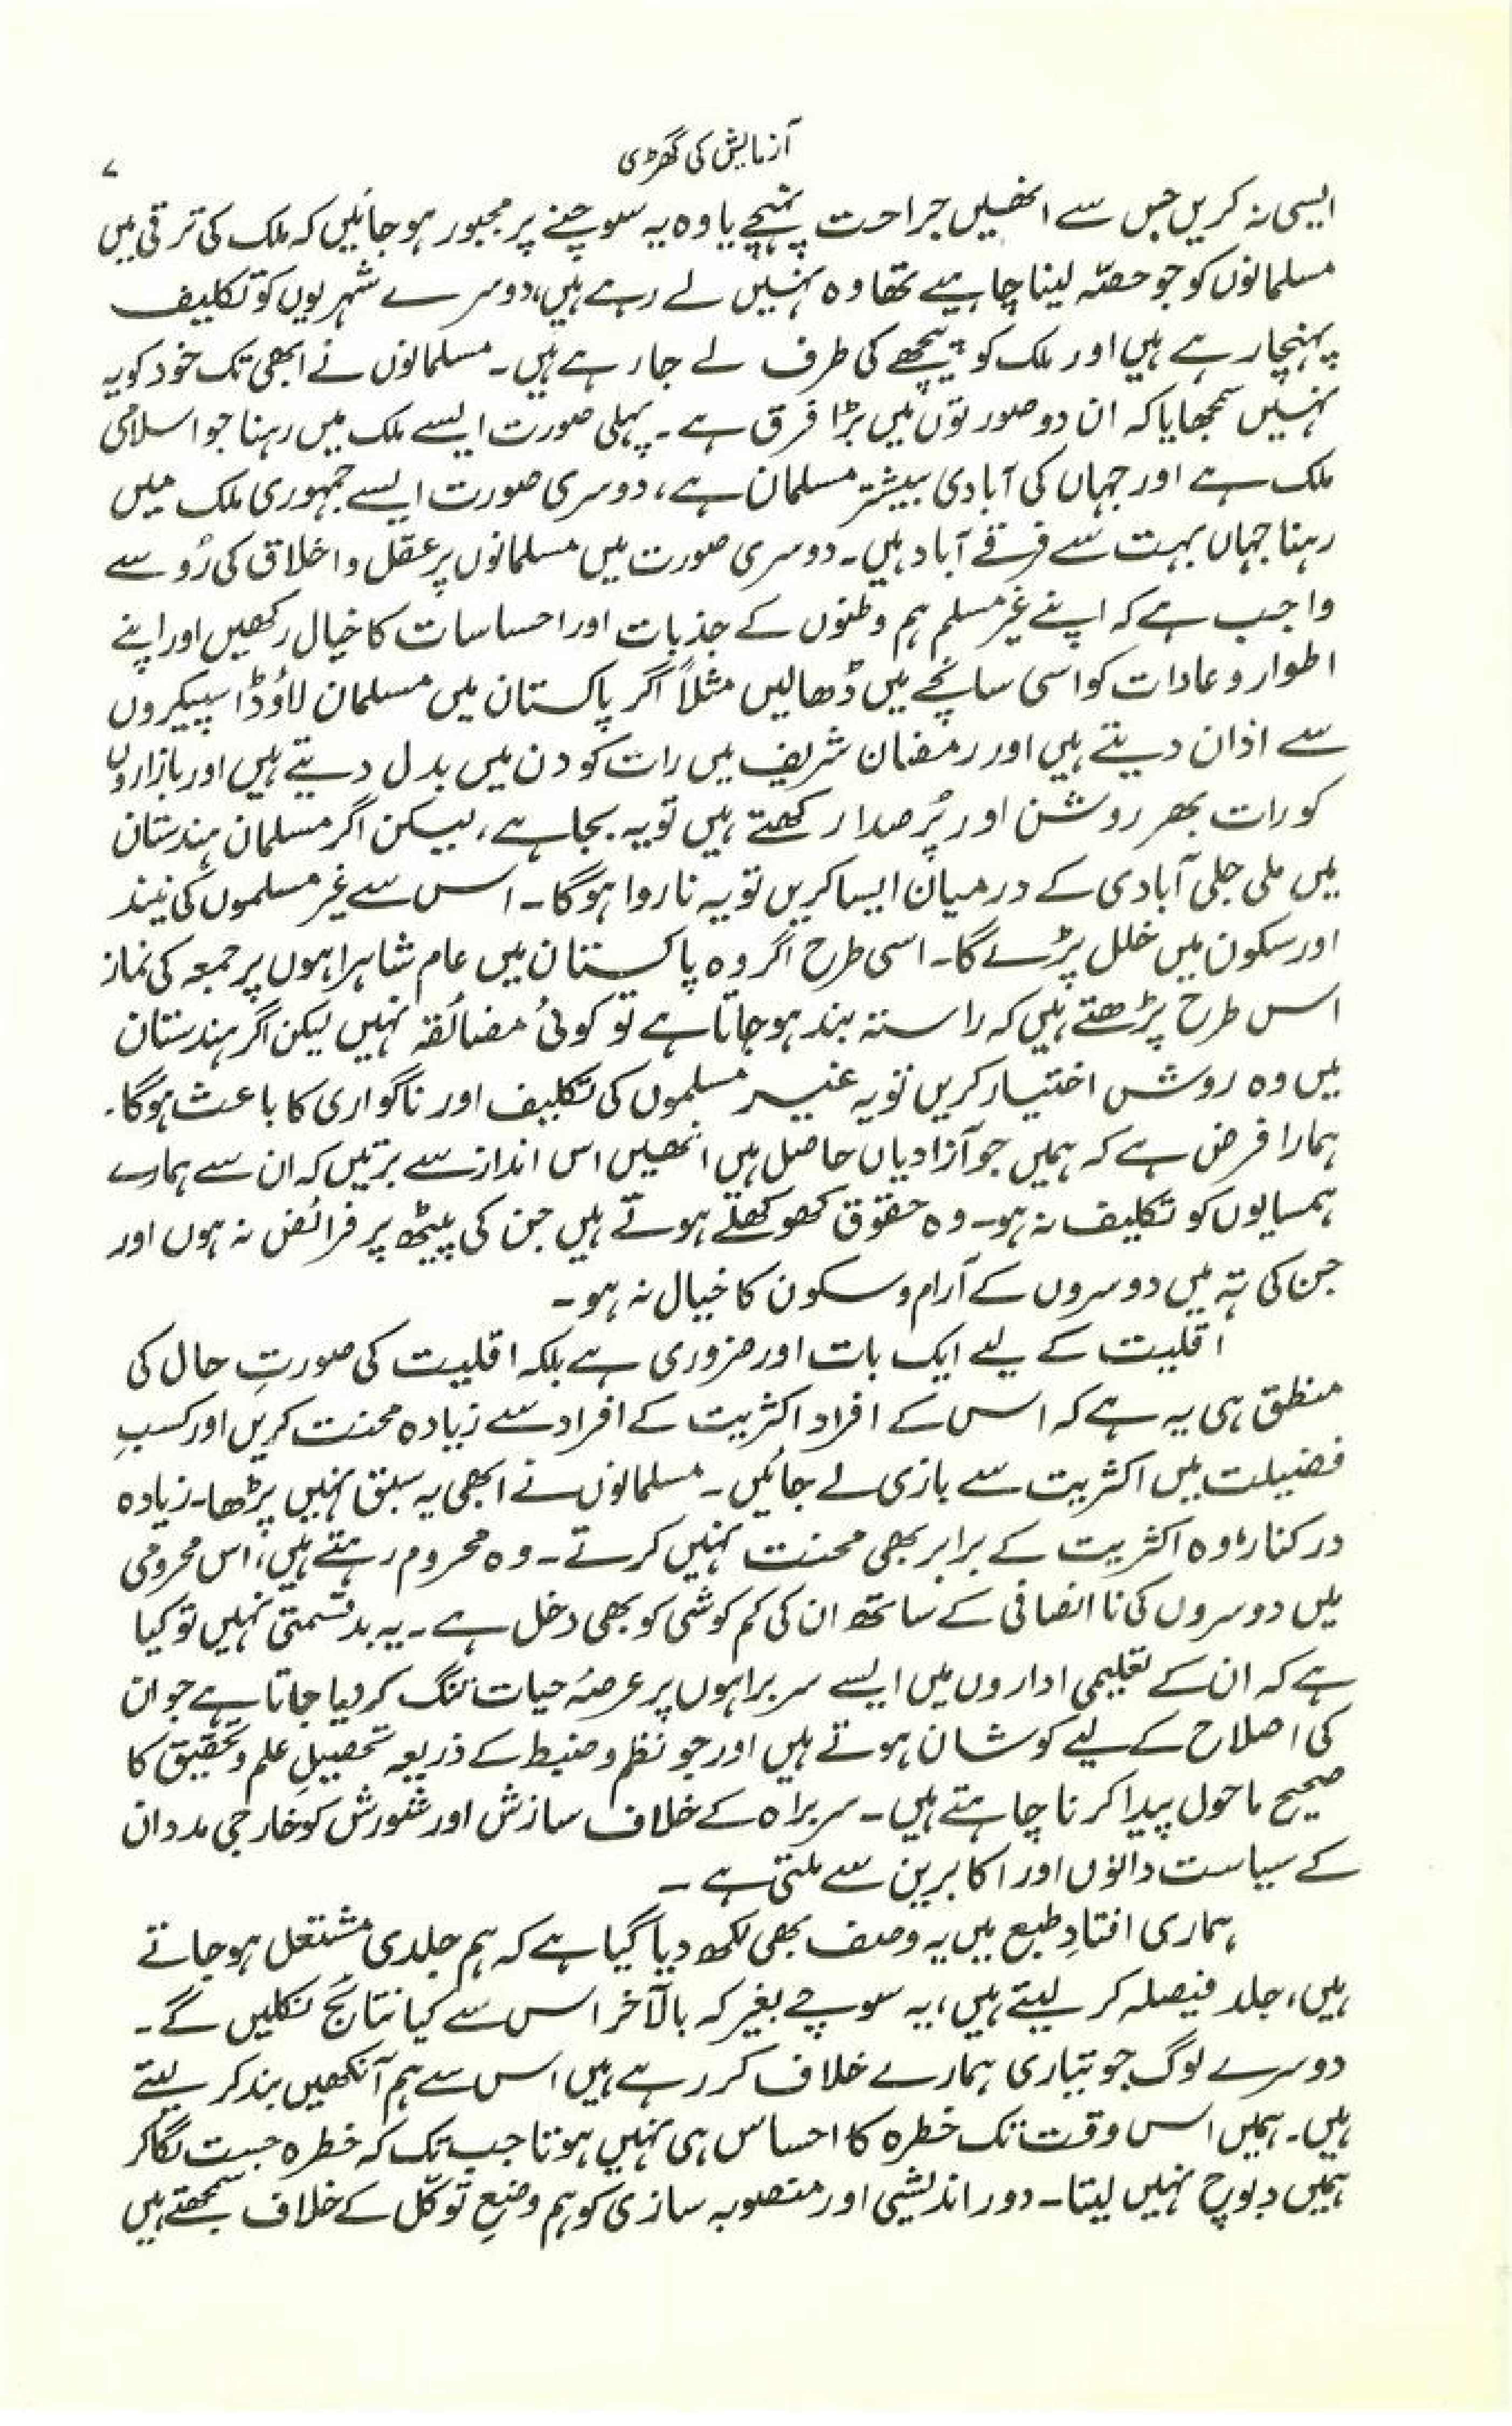 آزمایش کی گھڑی
۷
ایسی نہ کریں جس سے انھیں جراحت پہنچے یا وہ یہ سوچنے پر مجبور ہو جائیں کہ ملک کی ترقی میں
مسلمانوں کو جو حصّہ لینا چاہیے تھا وہ نہیں لے رہے ہیں، دوسرے شہریوں کو تکلیف
پہنچا رہے ہیں اور ملک کو پیچھے کی طرف لے جا رہے ہیں۔ مسلمانوں نے ابھی تک خود کو یہ
نہیں سمجھایا کہ ان دو صورتوں میں بڑا فرق ہے۔ پہلی صورت ایسے ملک میں رہنا جو اسلامی
ملک ہے اور جہاں کی آبادی بیشتر مسلمان ہے، دوسری صورت ایسے جمہوری ملک میں
رہنا جہاں بہت سے فرقے آباد ہیں۔ دوسری صورت میں مسلمانوں پر عقل و اخلاق کی رُو سے
واجب ہے کہ اپنے غیر مسلم ہم وطنوں کے جذبات اور احساسات کا خیال رکھیں اور اپنے
اطوار و عادات کو اسی سانچے میں ڈھالیں مثلاً اگر پاکستان میں مسلمان لاؤڈ اسپیکروں
سے اذان دیتے ہیں اور رمضان شریف میں رات کو دن میں بدل دیتے ہیں اور بازاروں
کو رات بھر روشن اور پُر صدا رکھتے ہیں تو یہ بجا ہے، لیکن اگر مسلمان ہندستان
میں ملی جلی آبادی کے درمیان ایسا کریں تو یہ ناروا ہوگا۔ اس سے غیر مسلموں کی نیند
اور سکون میں خلل پڑے گا۔ اسی طرح اگر وہ پاکستان میں عام شاہراہوں پر جمعہ کی نماز
اس طرح پڑھتے ہیں کہ راستہ بند ہو جاتا ہے تو کوئی مضائقہ نہیں لیکن اگر ہندستان
میں وہ روش اختیار کریں تو یہ غیر مسلموں کی تکلیف اور ناگواری کا باعث ہوگا۔
ہمارا فرض ہے کہ ہمیں جو آزادیاں حاصل ہیں انھیں اس انداز سے برتیں کہ ان سے ہمارے
ہمسایوں کو تکلیف نہ ہو۔ وہ حقوق کھوکھلے ہوتے ہیں جن کی پیٹھ پر فرائض نہ ہوں اور
جن کی تہ میں دوسروں کے آرام و سکون کا خیال نہ ہو۔
اقلیت کے لیے ایک بات اور ضروری ہے بلکہ اقلیت کی صورتِ حال کی
منطق ہی یہ ہے کہ اس کے افراد اکثریت کے افراد سے زیادہ محنت کریں اور کسبِ
فضیلت میں اکثریت سے بازی لے جائیں۔ مسلمانوں نے ابھی یہ سبق نہیں پڑھا۔ زیادہ
در کنار، وہ اکثریت کے برابر بھی محنت نہیں کرتے۔ وہ محروم رہتے ہیں، اس محرومی
میں دوسروں کی نا انصافی کے ساتھ ان کی کم کوشی کو بھی دخل ہے۔ یہ بدقسمتی نہیں تو کیا
ہے کہ ان کے تعلیمی اداروں میں ایسے سربراہوں پر عرصۂ حیات تنگ کر دیا جاتا ہے جو ان
کی اصلاح کے لیے کوشان ہوتے ہیں اور جو نظم و ضبط کے ذریعہ تحصیلِ علم و تحقیق کا
صحیح ماحول پیدا کرنا چاہتے ہیں۔ سربراہ کے خلاف سازش اور شورش کو خارجی مدد ان
کے سیاست دانوں اور اکابرین سے ملتی ہے۔
ہماری افتادِ طبع میں یہ وصف بھی لکھ دیا گیا ہے کہ ہم جلدی مشتعل ہو جاتے
ہیں، جلد فیصلہ کر لیتے ہیں، یہ سوچے بغیر کہ بالآخر اس سے کیا نتائج نکلیں گے۔
دوسرے لوگ جو تیاری ہمارے خلاف کر رہے ہیں اس سے ہم آنکھیں بند کر لیتے
ہیں۔ ہمیں اس وقت تک خطرہ کا احساس ہی نہیں ہوتا جب تک کہ خطرہ جست لگا کر
ہمیں دبوچ نہیں لیتا۔ دور اندیشی اور منصوبہ سازی کو ہم وضعِ توکّل کے خلاف سمجھتے ہیں